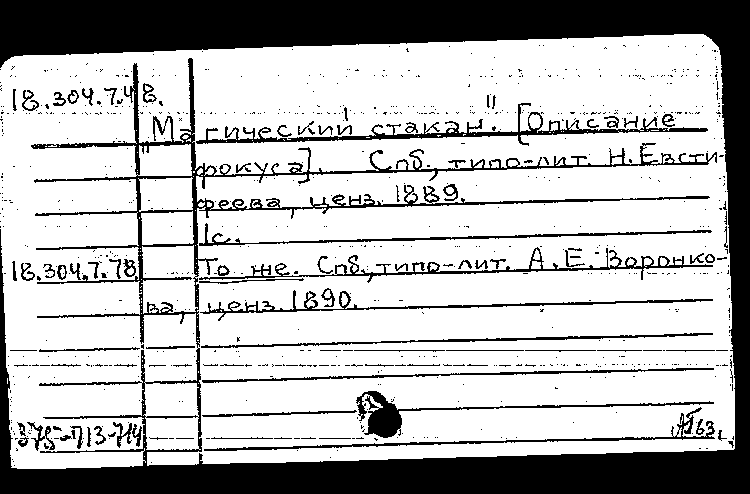 18.304.7.48.
„Магический стакан". [Описание
фокуса]. Спб., типо-лит. Н. Евсти-
феева, ценз. 1889.
1с.
18.304.7.78 То же. Спб., типо-лит. А.Е. Воронко-
ва, ценз. 1890.
375-713-714